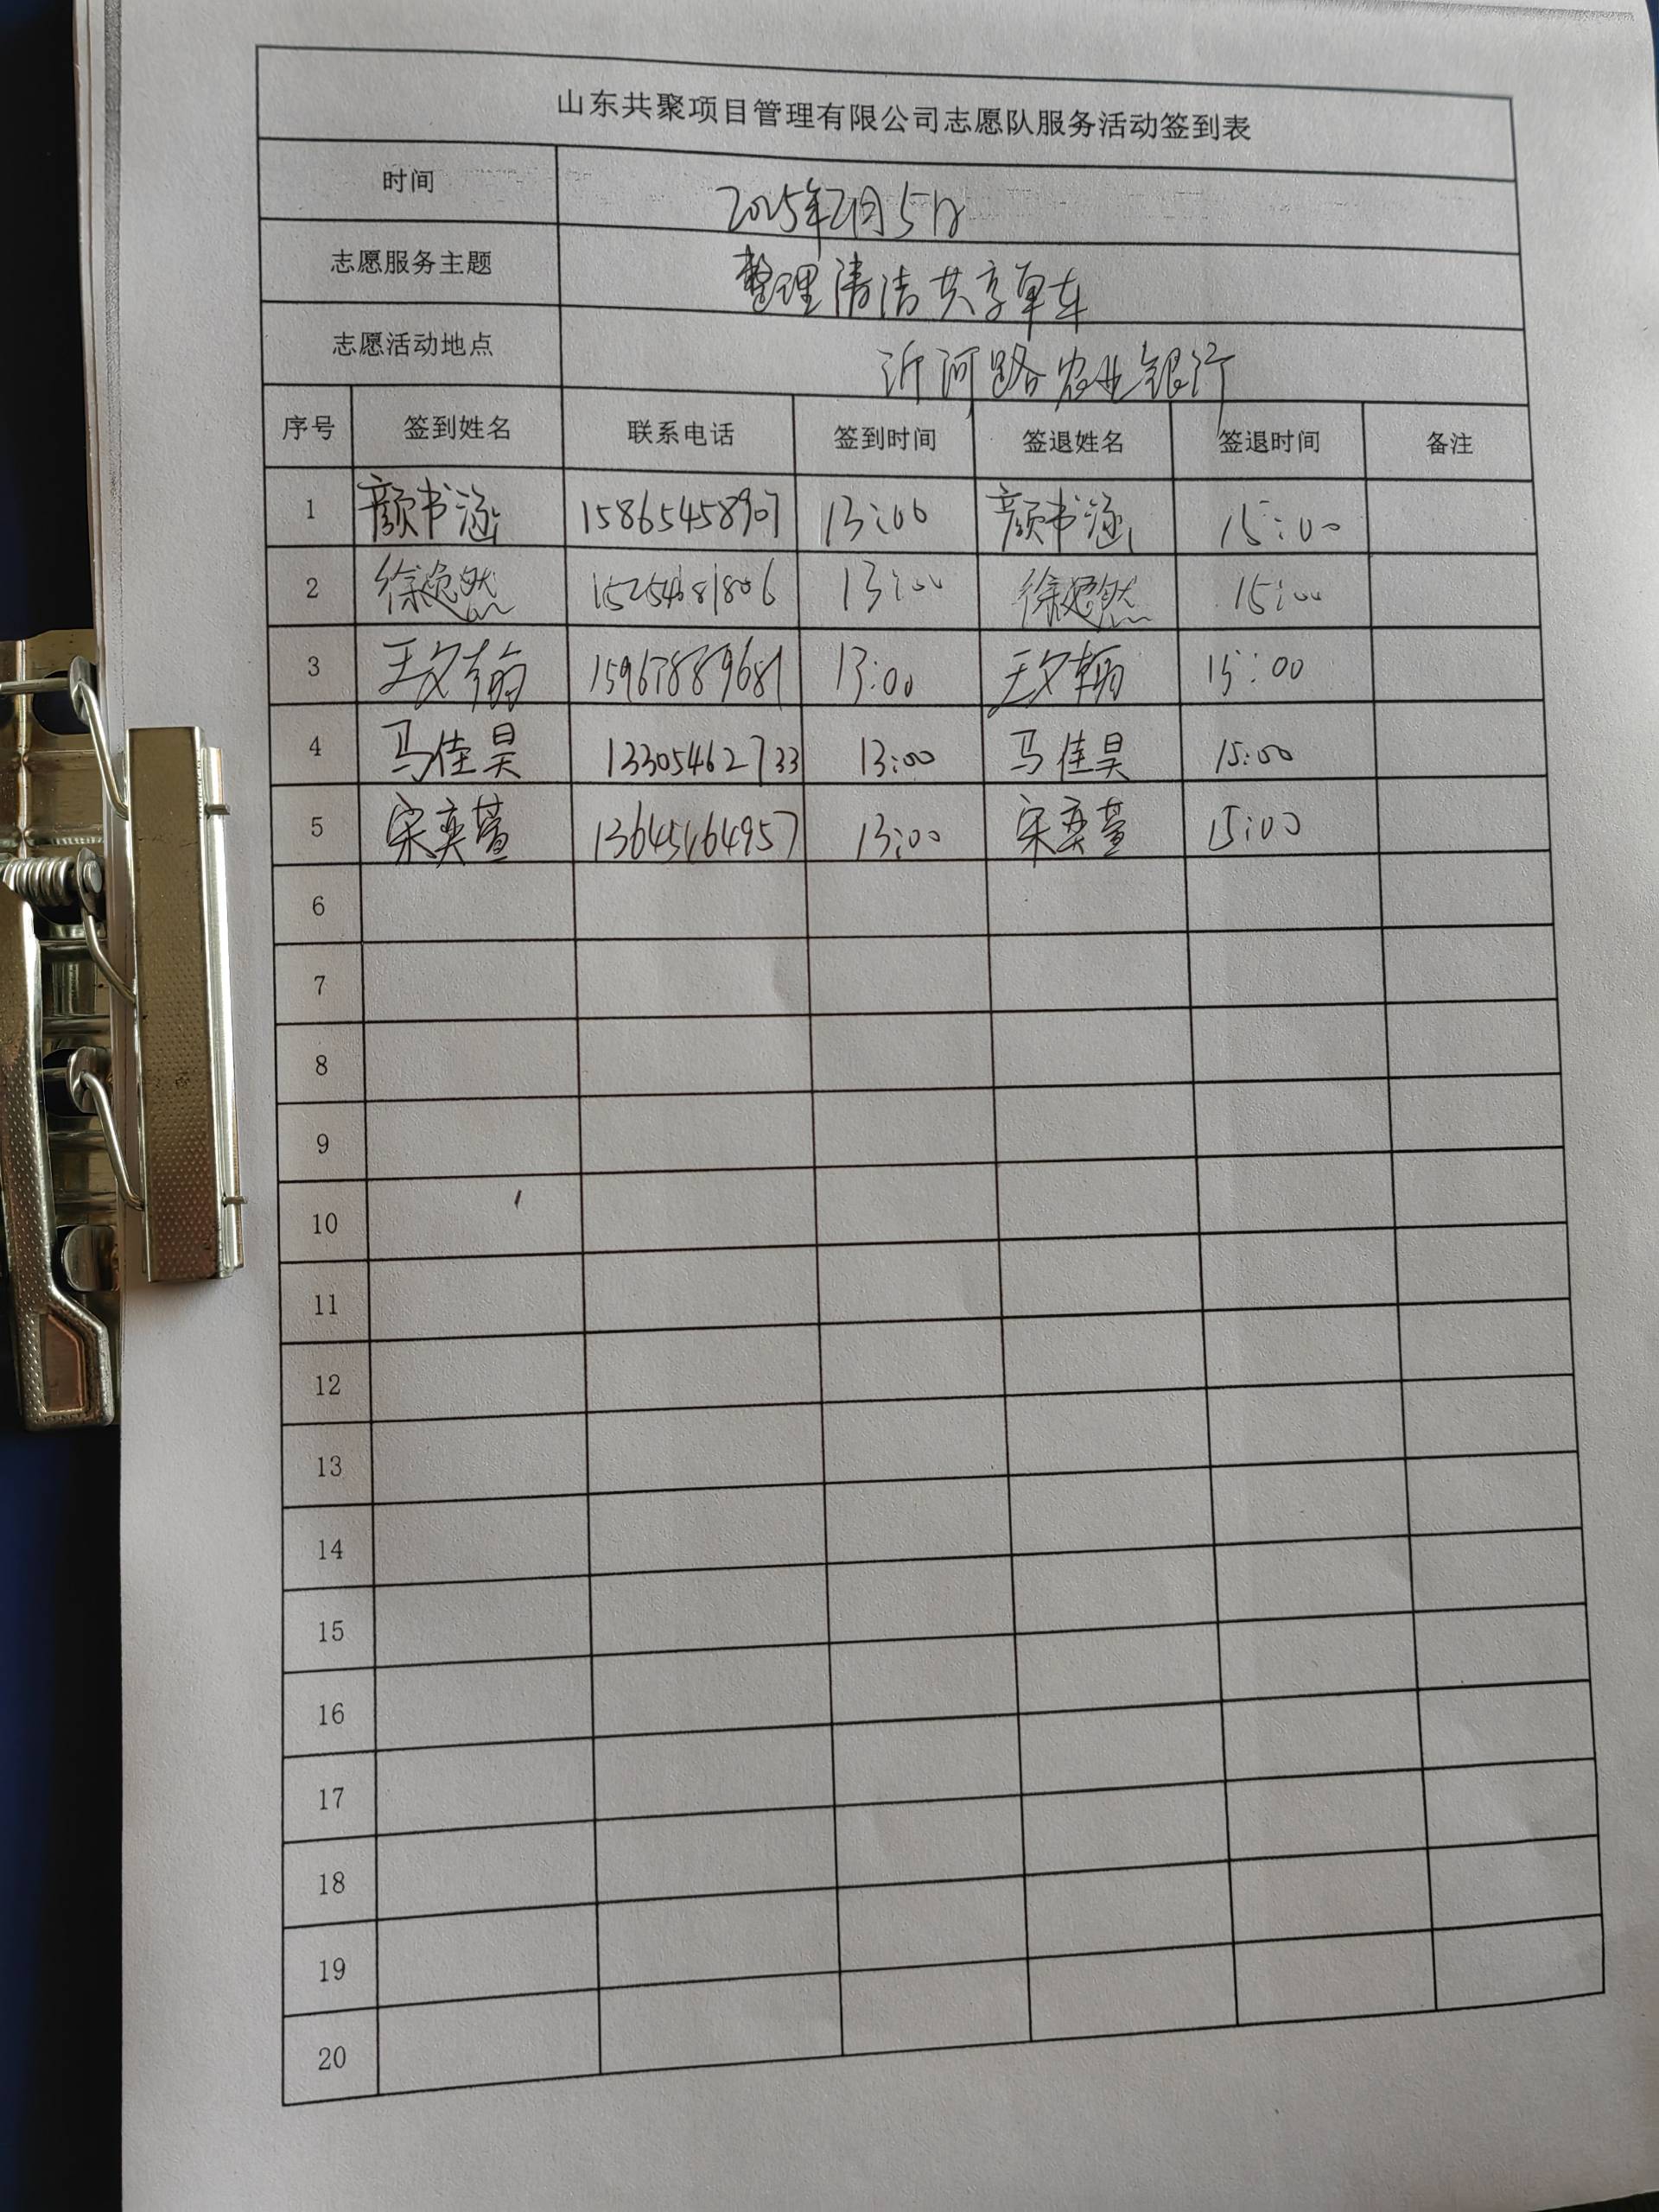 山东共聚项目管理有限公司志愿队服务活动签到表
时间 2025年2月5日
志愿服务主题 整理清洁共享单车
志愿活动地点 沂河路农业银行
序号 签到姓名 联系电话 签到时间 签退姓名 签退时间 备注
1 颜书涵 15865458907 13:00 颜书涵 15:00
2 徐悠然 15254681806 13:00 徐悠然 15:00
3 王文 13:00 王文 15:00
4 马佳昊 13305462733 13:00 马佳昊 15:00
5 宋奕萱 13645464957 13:00 宋奕萱 15:00
6
7
8
9
10
11
12
13
14
15
16
17
18
19
20